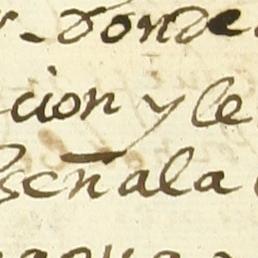 Donde
cion y le
señala